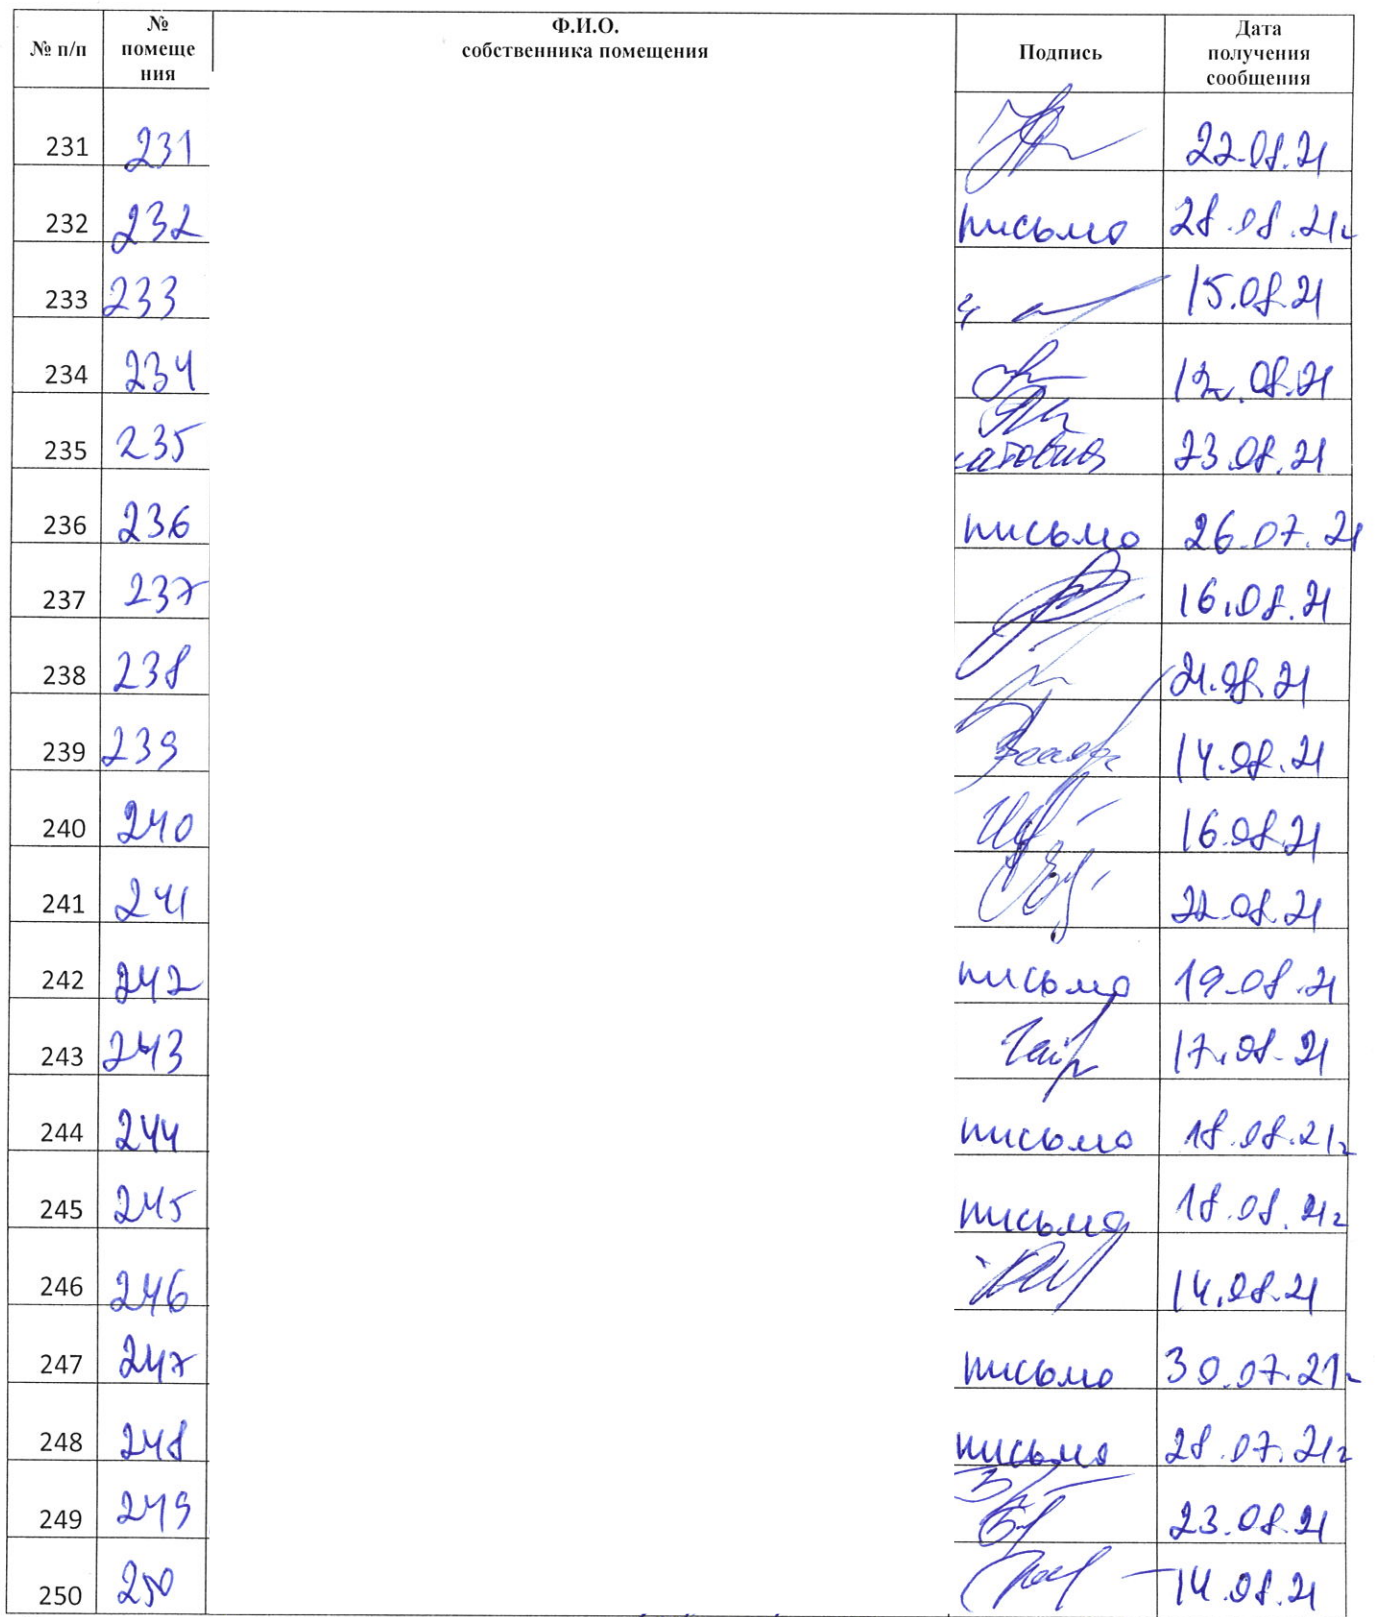 № п/п № помеще ния Ф.И.О. собственника помещения Подпись Дата получения сообщения
231 231 22.08.21
232 232 письмо 28.08.21г
233 233 15.08.21
234 234 12.08.21
235 235 23.08.21
236 236 письмо 26.07.21
237 237 16.08.21
238 238 21.08.21
239 239 14.08.21
240 240 16.08.21
241 241 22.08.21
242 242 письмо 19.08.21
243 243 17.08.21
244 244 письмо 18.08.21г
245 245 письмо 18.08.21г
246 246 14.08.21
247 247 письмо 30.07.21г
248 248 письмо 28.07.21г
249 249 23.08.21
250 250 14.08.21